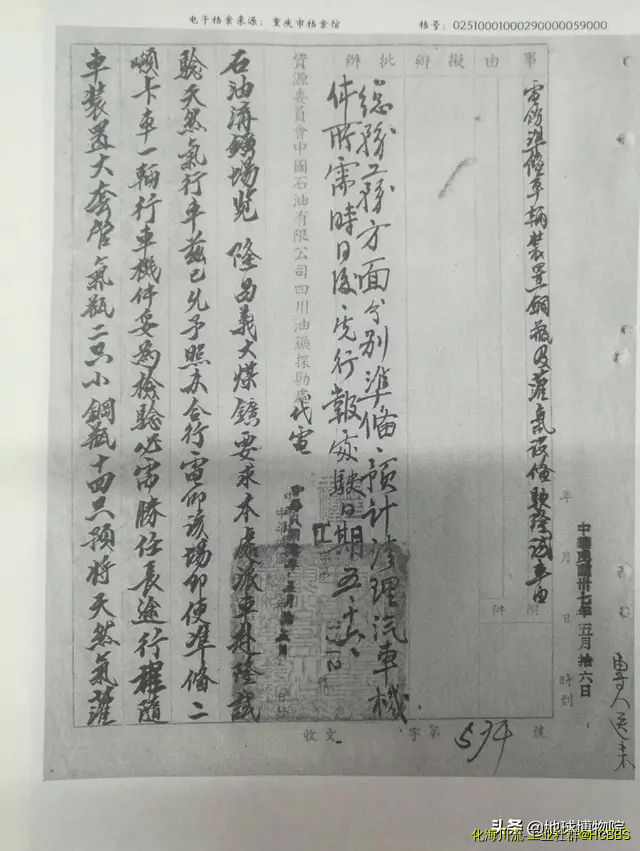 电子档案来源：重庆市档案馆
档号：02510001000290000059000
事由擬辦批辦
電飭準備車輛裝置鋼瓶及灌氣設俻駛隆試車由
附件
年月日時到
中華民國卅七年五月拾六日
專人送来
總務工務方面分别準俻、預計修理汽車機
件所需時日後、先行報
駛日期
資源委員會中國石油有限公司四川油鑛探勘處代電
石油溝鑛場览 隆昌義大煤鑛要求本處派車赴隆試
驗天然氣行車兹已允予照办合行電仰該場卽便準俻二
噸卡車一輛行車機件妥為檢驗必需勝任長途行程隨
車裝置大套管氣瓶二只小鋼瓶十四只預將天然氣灌
收文字第534號
头条 @地球博物院
化海川流-工业社群@HCBBS